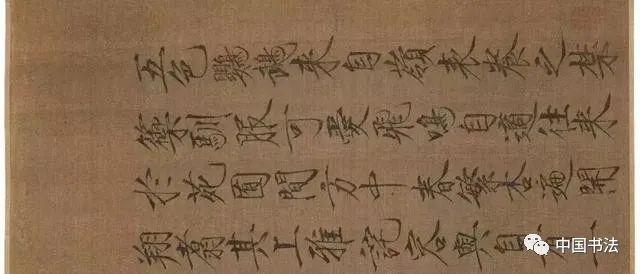 五色鸚鵡來自嶺表養之禁
籞馴服可愛飛鳴自適往來
於苑囿間方中春繁杏遍開
翔翥其上雅詫容與自一
中国书法